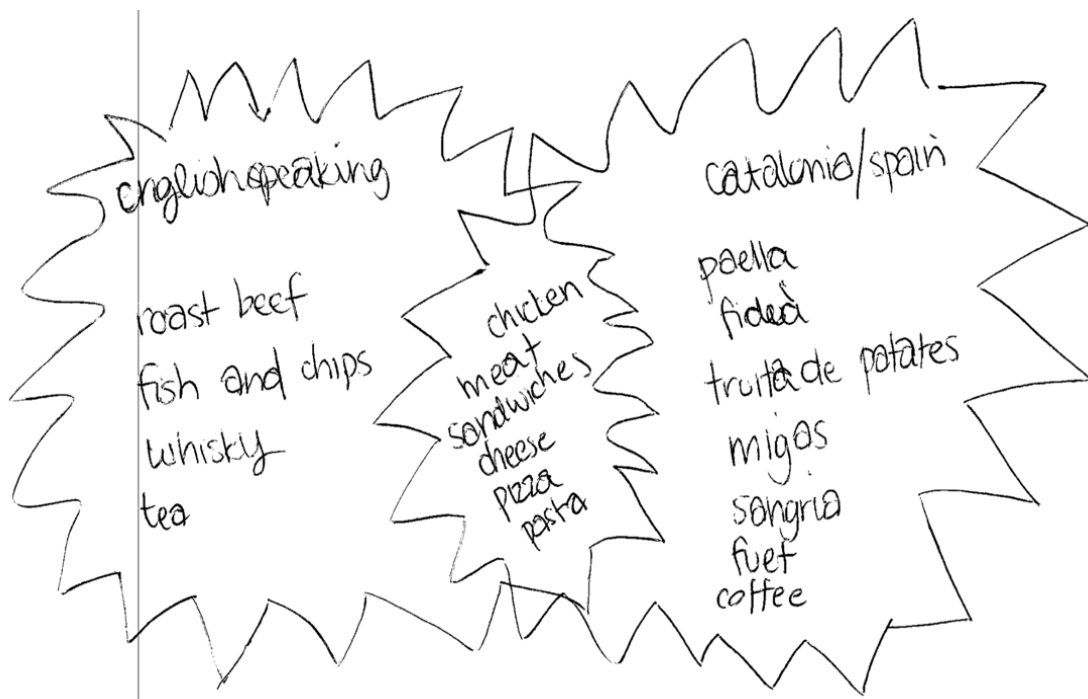 englishspeaking
roast beef
fish and chips
whisky
tea
chicken
meat
sandwiches
cheese
pizza
pasta
catalonia/spain
paella
fideà
truita de patates
migas
sangria
fuet
coffee